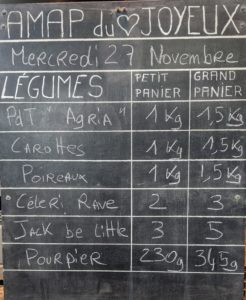 AMAP du ♥ JOYEUX
Mercredi 27 Novembre
LÉGUMES PETIT PANIER GRAND PANIER
PdT "Agria" 1 Kg 1,5 Kg
CAROTTES 1 Kg 1,5 Kg
POIREAUX 1 Kg 1,5 Kg
Céleri RAVE 2 3
JACK be little 3 5
POURPIER 230g 345g